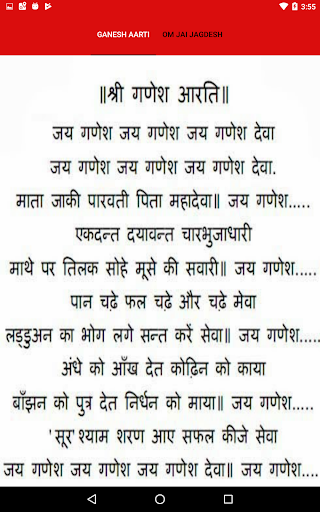 3:55
GANESH AARTI OM JAI JAGDESH
॥श्री गणेश आरति॥
जय गणेश जय गणेश जय गणेश देवा
जय गणेश जय गणेश जय गणेश देवा.
माता जाकी पारवती पिता महादेवा॥ जय गणेश.....
एकदन्त दयावन्त चारभुजाधारी
माथे पर तिलक सोहे मूसे की सवारी॥ जय गणेश.....
पान चढ़े फल चढ़े और चढ़े मेवा
लड्डुअन का भोग लगे सन्त करें सेवा॥ जय गणेश.....
अंधे को आँख देत कोढ़िन को काया
बाँझन को पुत्र देत निर्धन को माया॥ जय गणेश.....
'सूर' श्याम शरण आए सफल कीजे सेवा
जय गणेश जय गणेश जय गणेश देवा॥ जय गणेश....